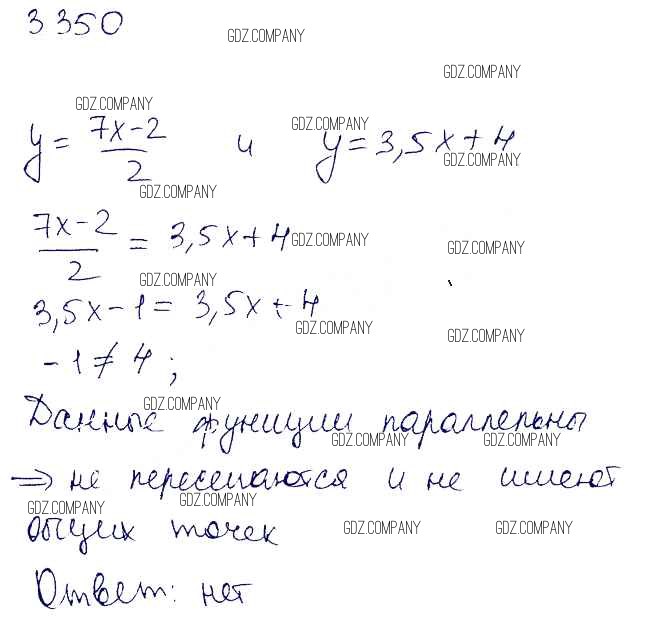 3 350
GDZ.COMPANY
GDZ.COMPANY
GDZ.COMPANY
y = (7x-2)/2 и y = 3,5x + 4
GDZ.COMPANY
GDZ.COMPANY
GDZ.COMPANY
(7x-2)/2 = 3,5x + 4
GDZ.COMPANY
GDZ.COMPANY
GDZ.COMPANY
3,5x - 1 = 3,5x + 4
GDZ.COMPANY
GDZ.COMPANY
-1 ≠ 4;
GDZ.COMPANY
Данные функции параллельны
GDZ.COMPANY
GDZ.COMPANY
=> не пересекаются и не имеют
GDZ.COMPANY
GDZ.COMPANY
общих точек
GDZ.COMPANY
GDZ.COMPANY
Ответ: нет